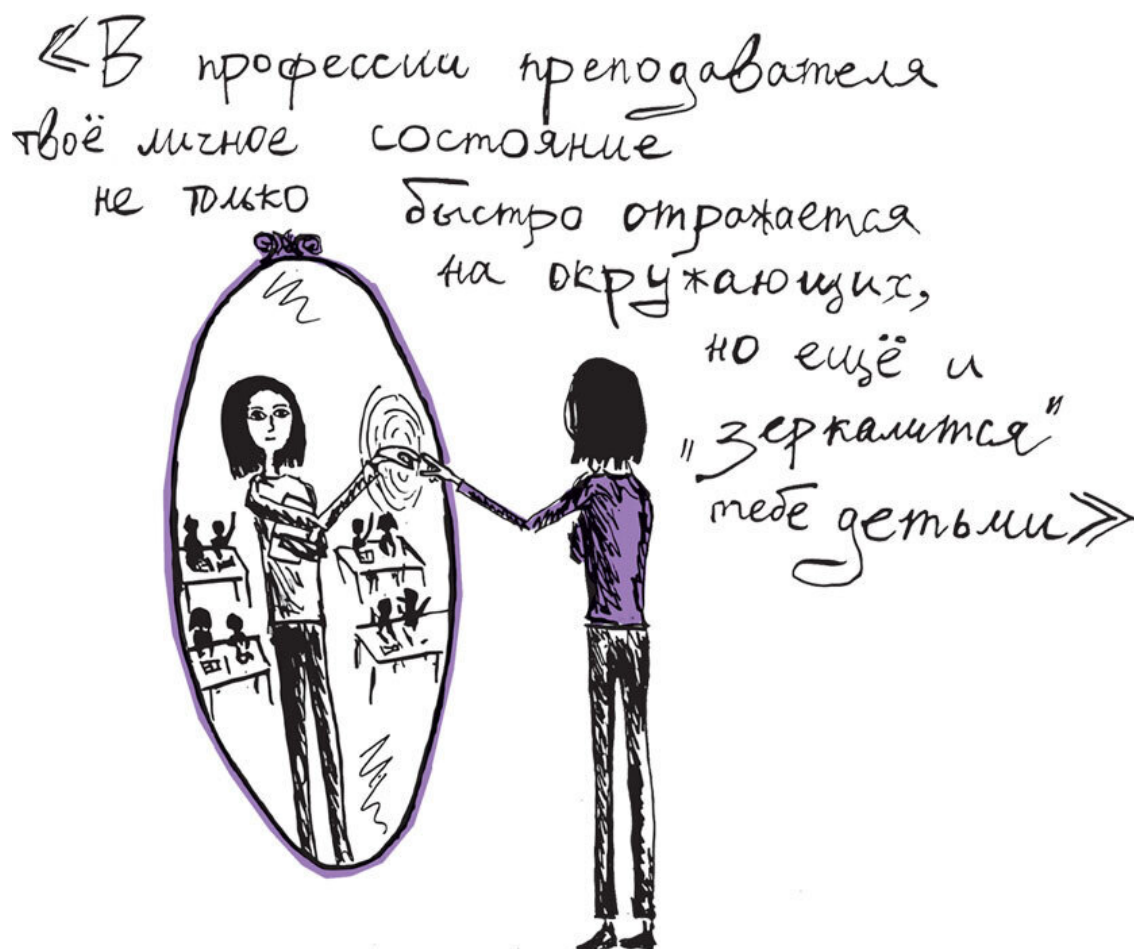 «В профессии преподавателя
твоё личное состояние
не только быстро отражается
на окружающих,
но ещё и
„зеркалится"
тебе детьми»